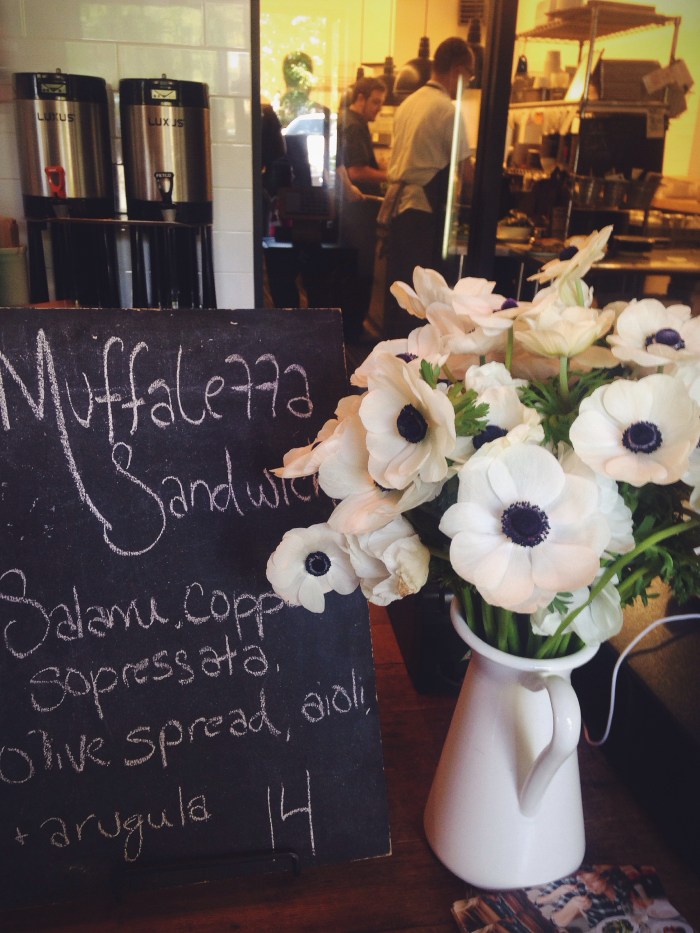 LUXUS
LUXUS
Muffaletta
Sandwich
Salami, Copp
sopressata,
olive spread, aioli,
+ arugula 14